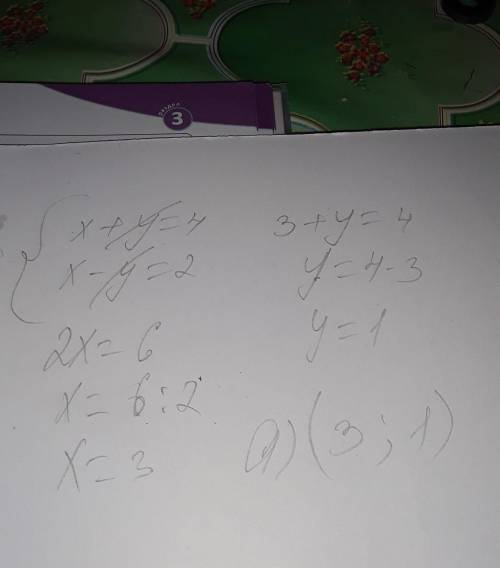 3
x+y=4
x-y=2
2x=6
x=6:2
x=3
3+y=4
y=4-3
y=1
а) (3; 1)